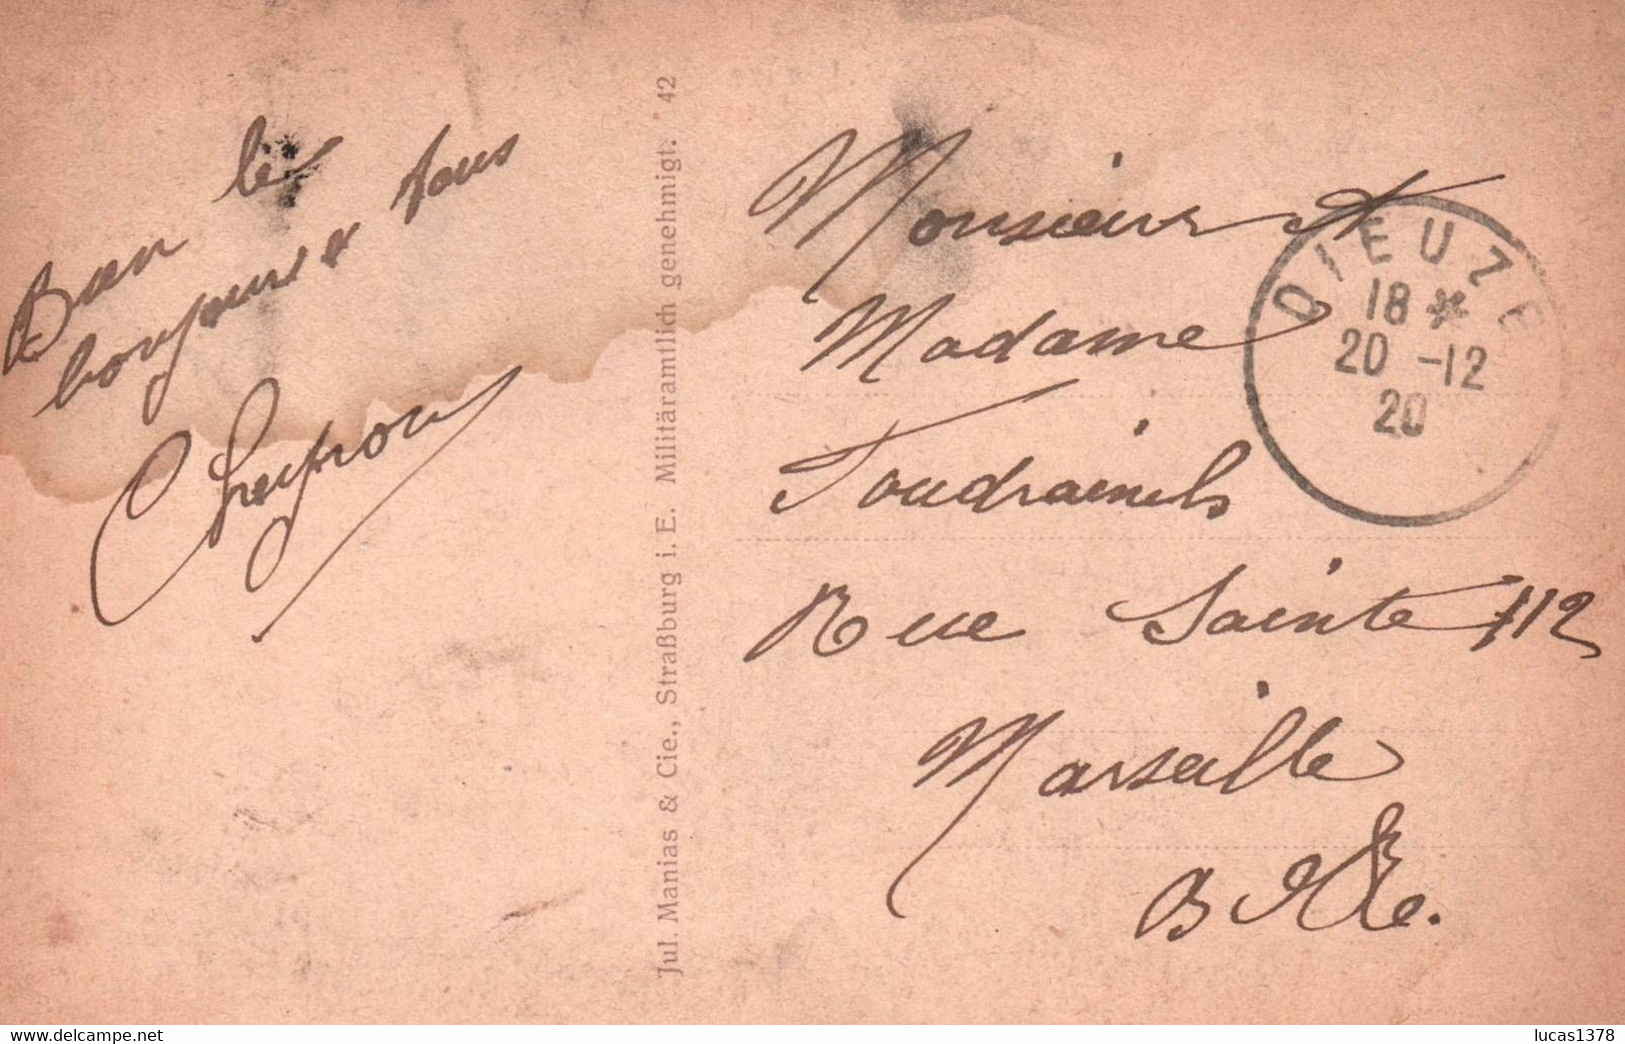 Bien le
bonjour à tous
Cheyron
Jul. Manias & Cie., Straßburg i. E. Militäramtlich genehmigt. 42
Monsieur et
Madame
Rue Sainte 112
Marseille
B d R.
DIEUZE
18 *
20 -12
20
www.delcampe.net
lucas1378